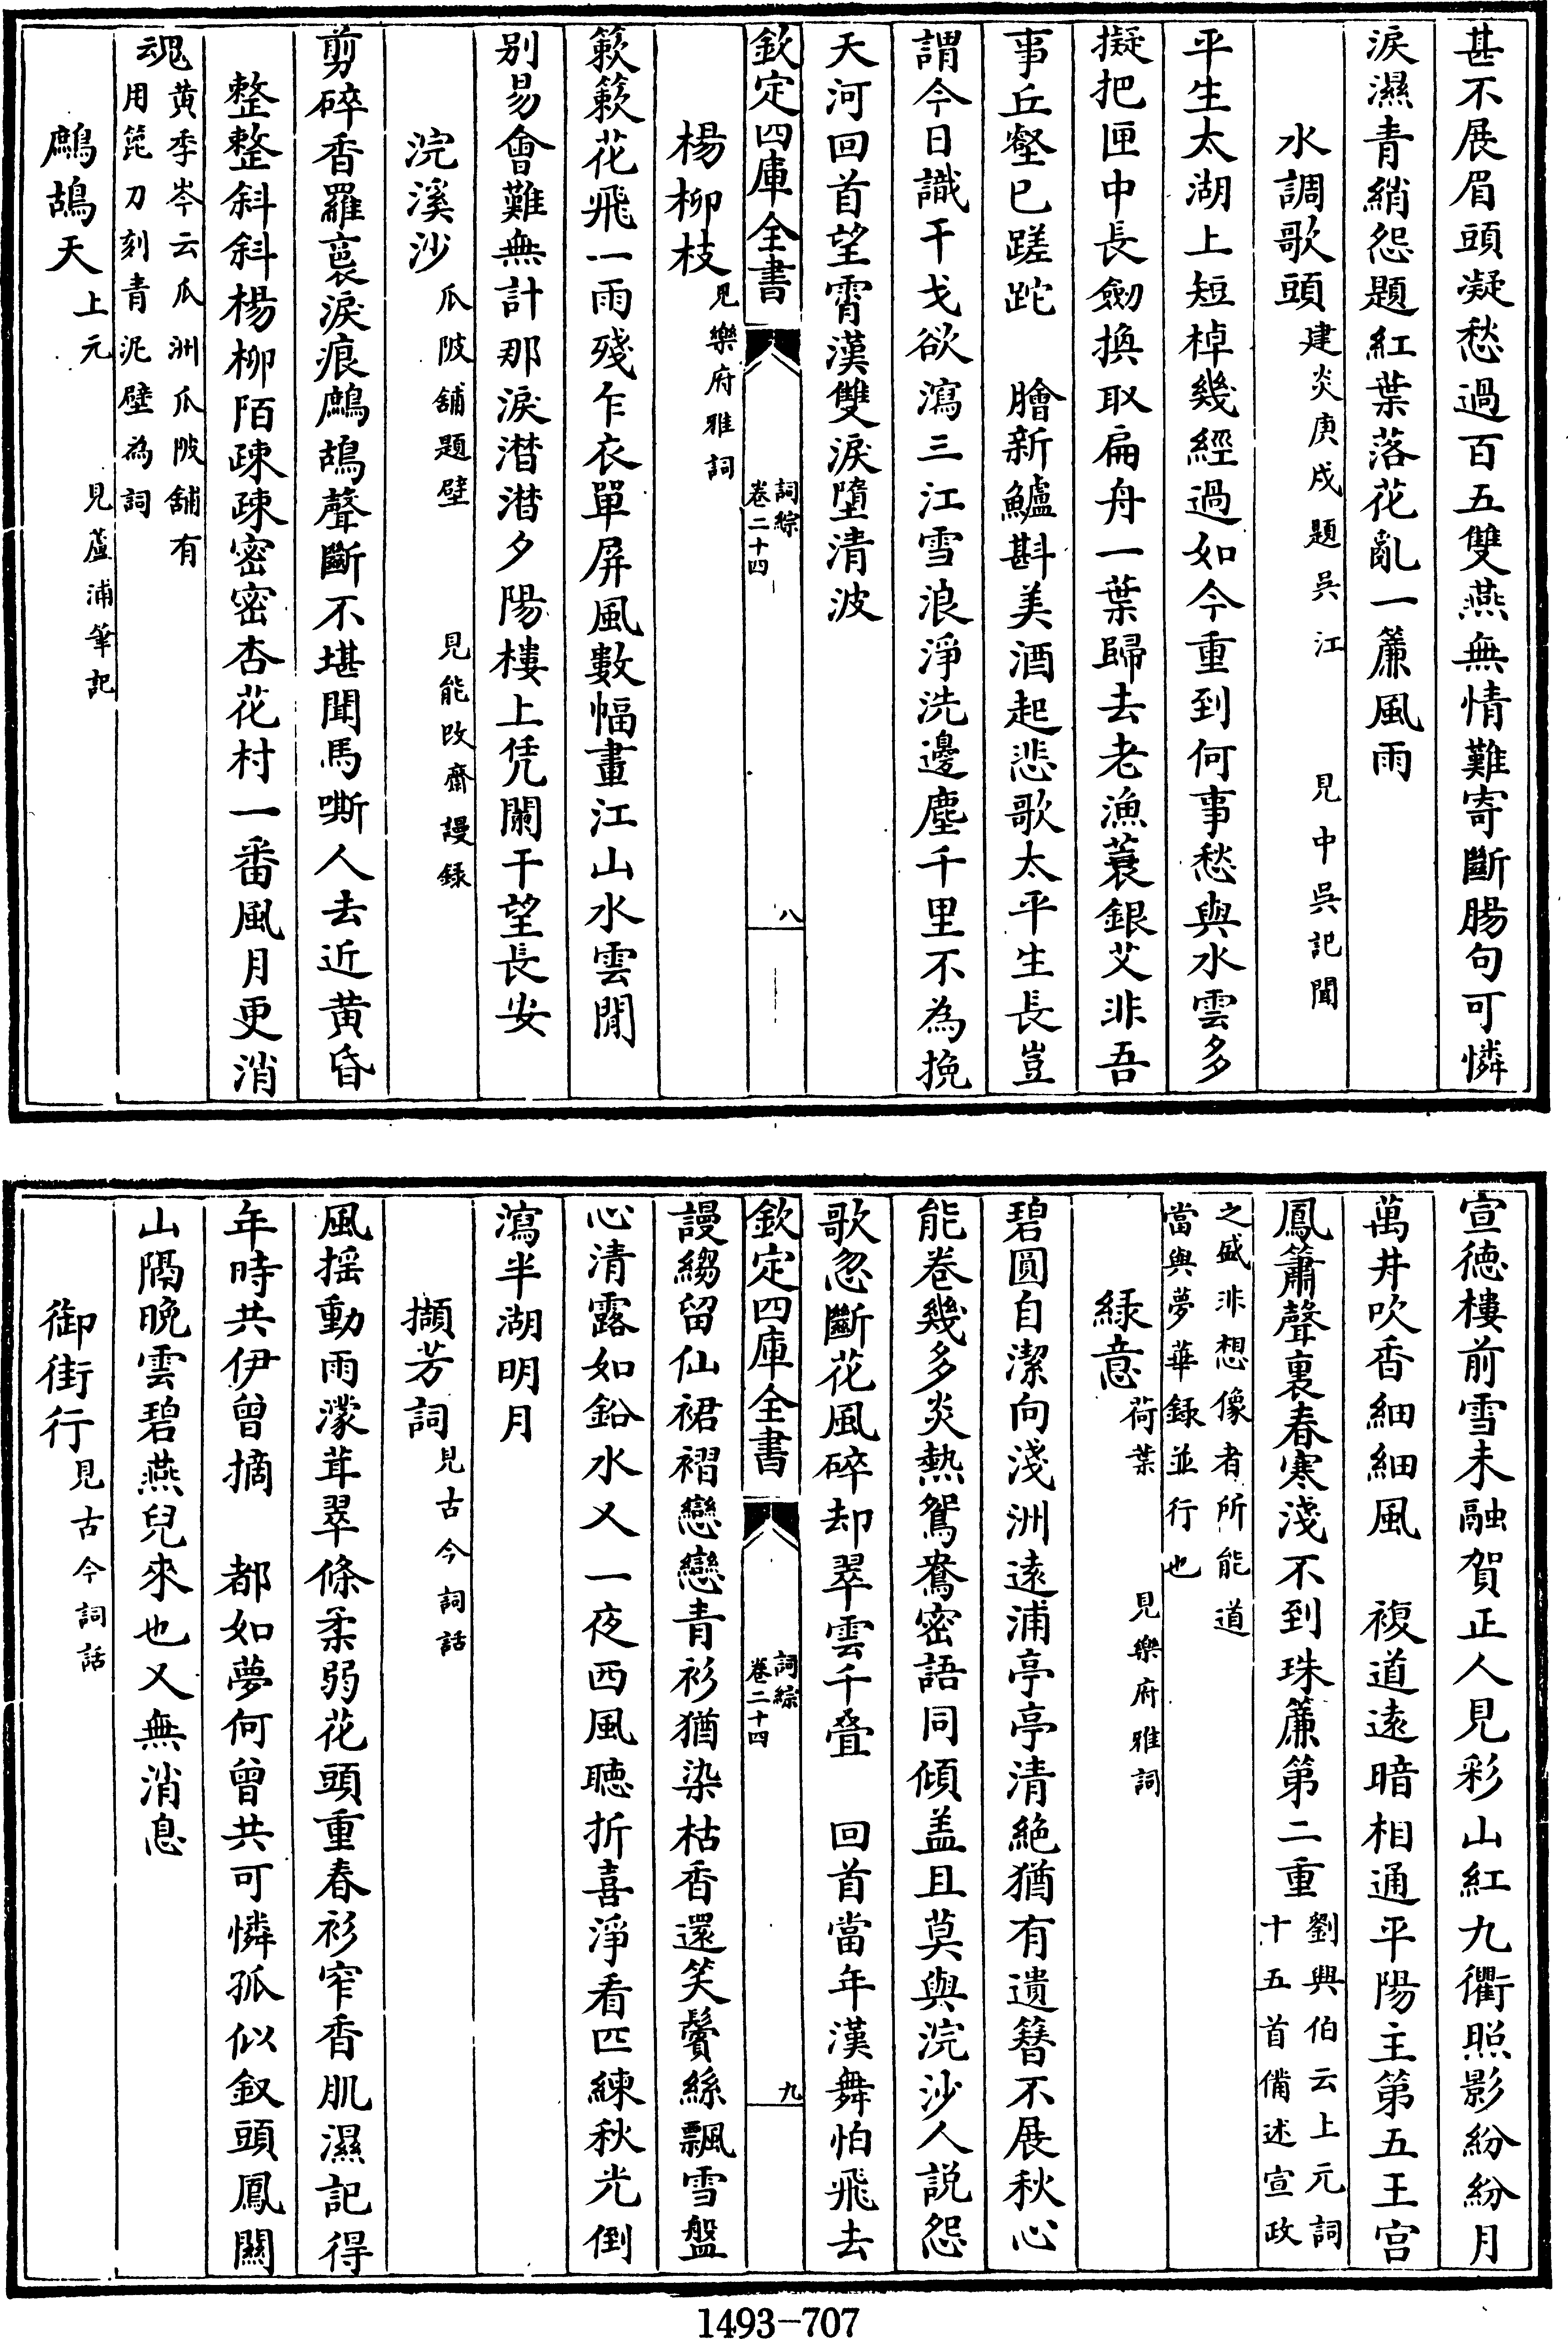 甚不展眉頭凝愁過百五雙燕無情難寄斷腸句可憐
淚濕青綃怨題紅葉落花亂一簾風雨
水調歌頭 建炎庚戌題吳江 見中吳記聞
平生太湖上短棹幾經過如今重到何事愁與水雲多
擬把匣中長劒換取扁舟一葉歸去老漁蓑銀艾非吾
事丘壑已蹉跎 膾新鱸斟美酒起悲歌太平生長豈
謂今日識干戈欲瀉三江雪浪淨洗邊塵千里不為挽
天河回首望霄漢雙淚墮清波
欽定四庫全書 詞綜 卷二十四 八
楊柳枝 見樂府雅詞
簌簌花飛一雨殘乍衣單屏風數幅畫江山水雲閒
别易會難無計那淚潸潸夕陽樓上凭闌干望長安
浣溪沙 瓜陂舖題壁 見能改齋謾録
剪碎香羅裛淚痕鷓鴣聲斷不堪聞馬嘶人去近黄昏
整整斜斜楊柳陌疎疎密密杏花村一番風月更消
魂 黄季岑云瓜洲瓜陂舖有
用箆刀刻青泥壁為詞
鷓鴣天 上元 見蘆浦筆記
宣德樓前雪未融賀正人見彩山紅九衢照影紛紛月
萬井吹香細細風 複道遠暗相通平陽主第五王宫
鳳簫聲裏春寒淺不到珠簾第二重 劉興伯云上元詞
十五首備述宣政
之盛非想像者所能道
當與夢華録並行也
緑意 荷葉 見樂府雅詞
碧圓自潔向淺洲遠浦亭亭清絶猶有遺簪不展秋心
能卷幾多炎熱鴛鴦密語同傾盖且莫與浣沙人説怨
歌忽斷花風碎却翠雲千叠 回首當年漢舞怕飛去
欽定四庫全書 詞綜 卷二十四 九
謾縐留仙裙褶戀戀青衫猶染枯香還笑鬢絲飄雪盤
心清露如鉛水又一夜西風聽折喜淨看匹練秋光倒
瀉半湖明月
擷芳詞 見古今詞話
風摇動雨濛茸翠條柔弱花頭重春衫窄香肌濕記得
年時共伊曾摘 都如夢何曾共可憐孤似釵頭鳳闗
山隔晚雲碧燕兒來也又無消息
御街行 見古今詞話
1493-707